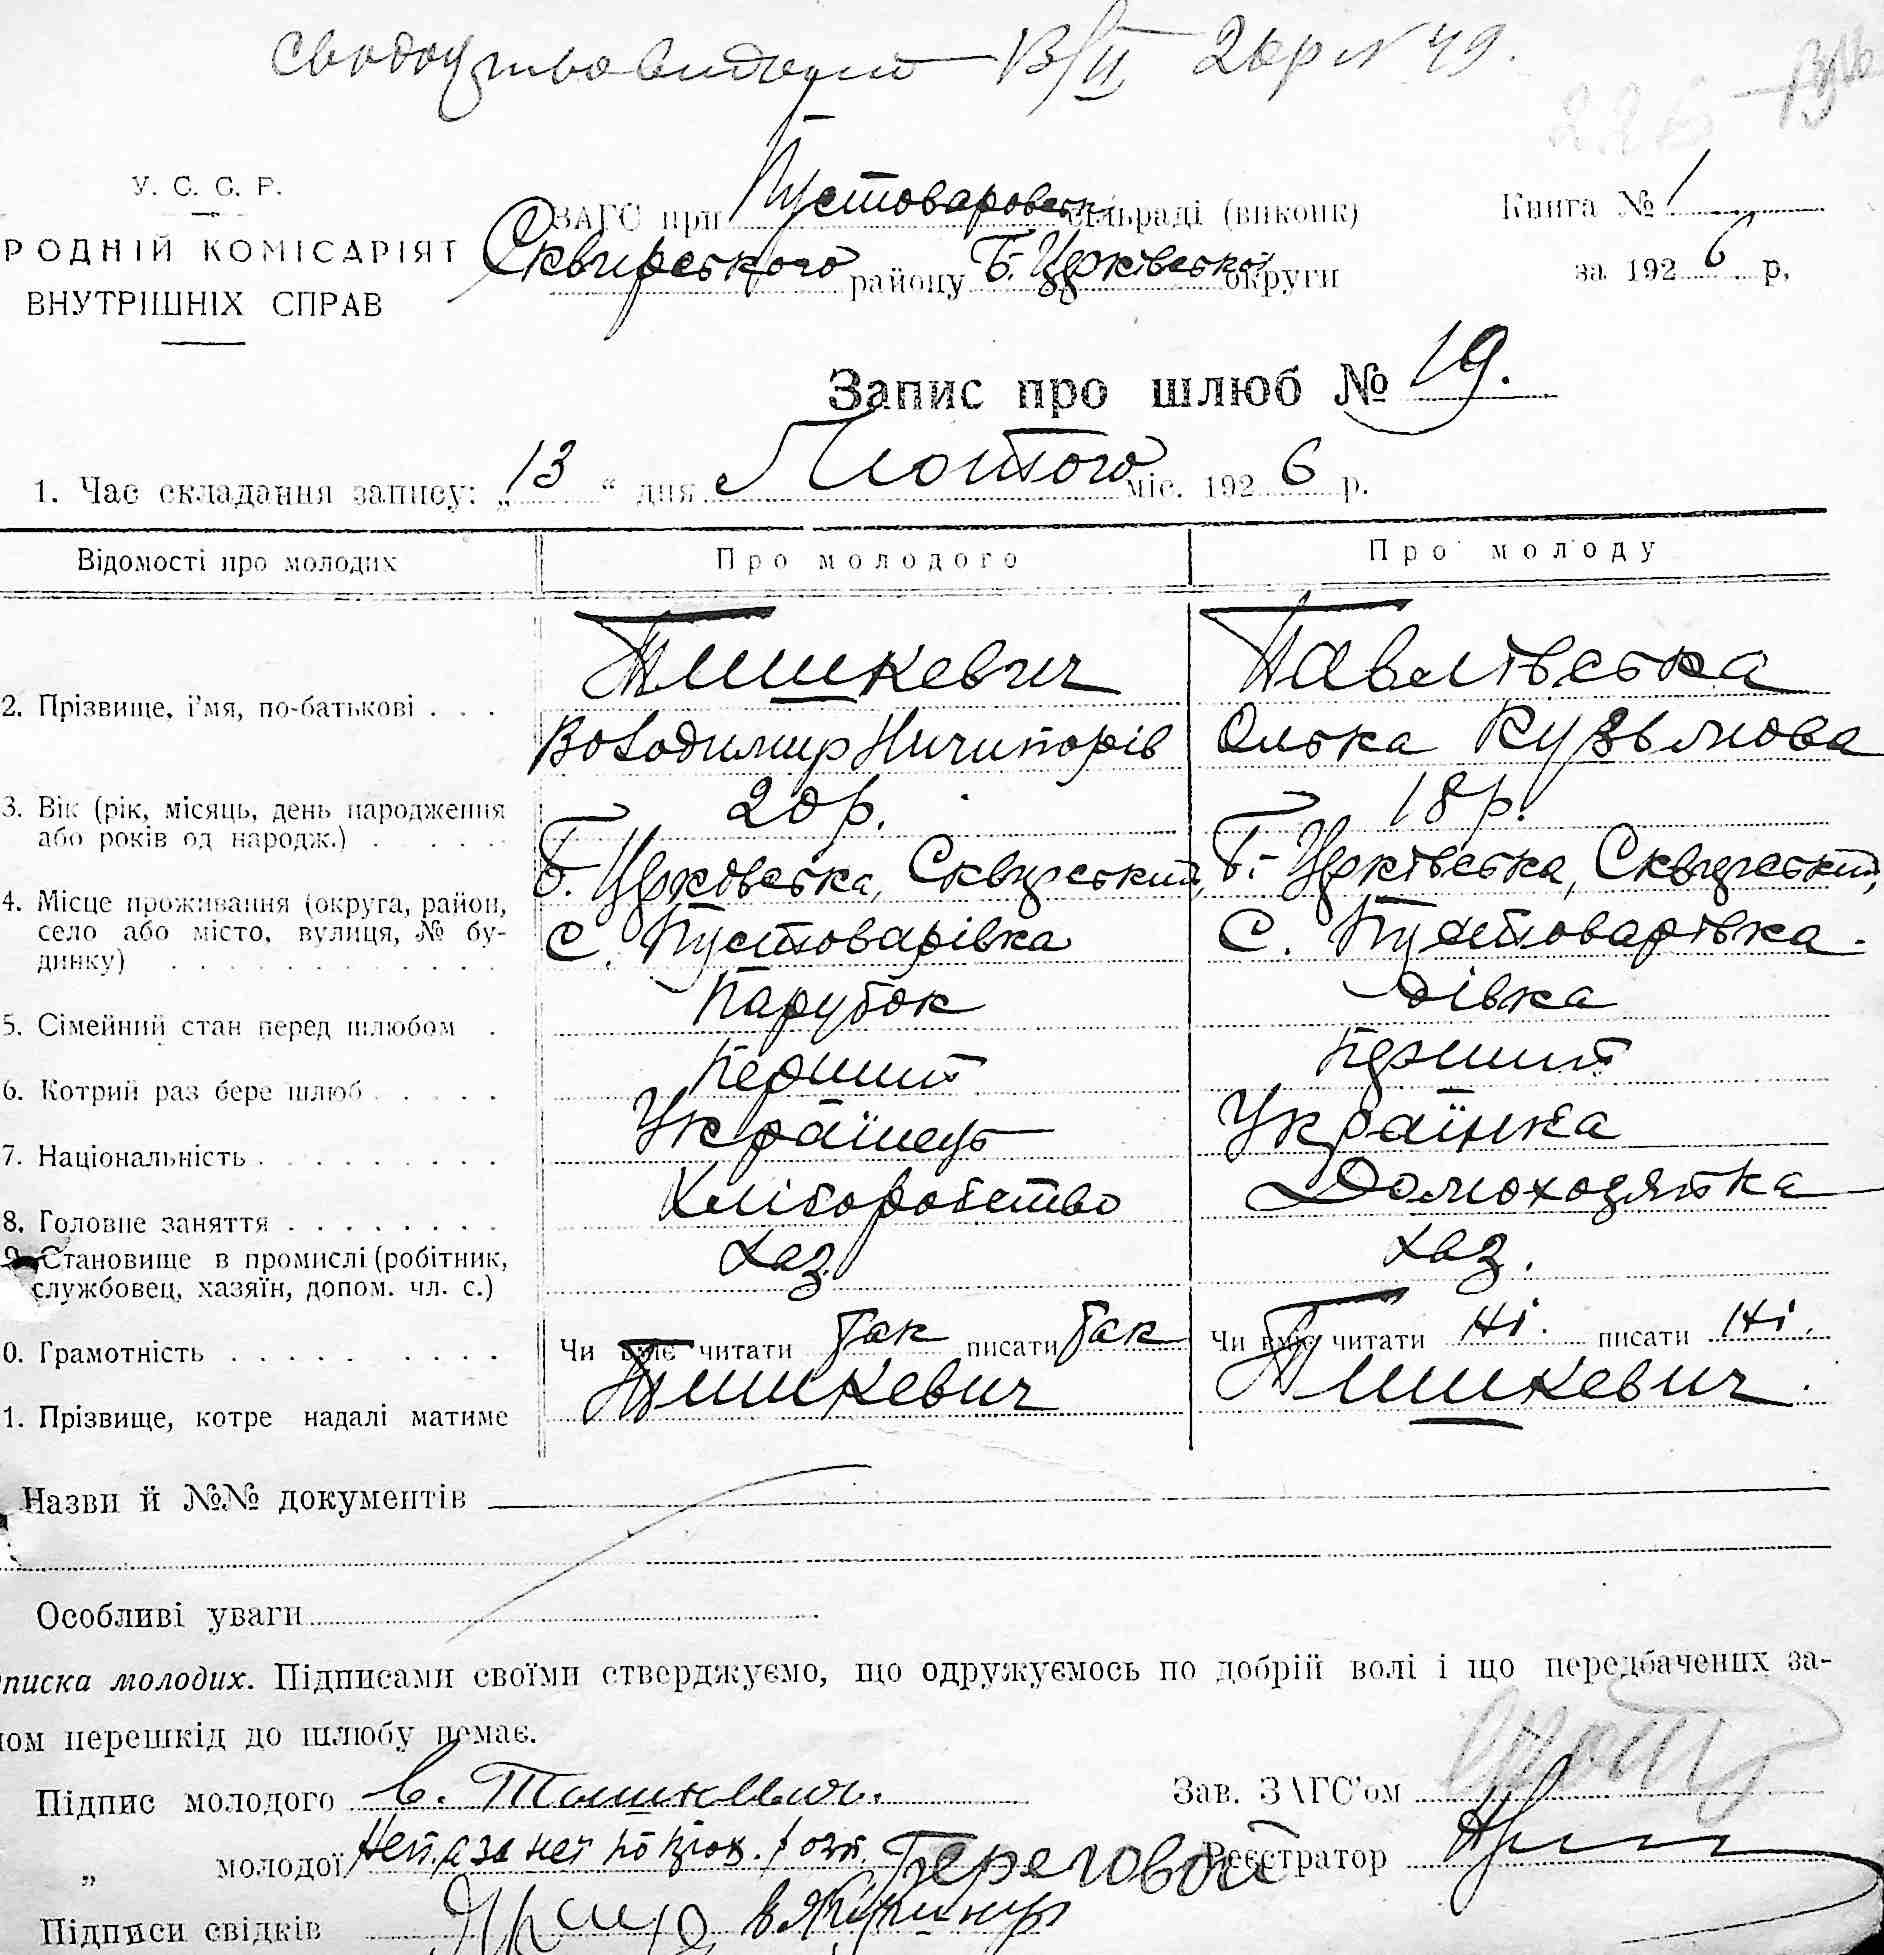 Свидоцтво видано 13/II 26 р № 49.
У. С. С. Р.
РОДНІЙ КОМІСАРІЯТ
ВНУТРІШНІХ СПРАВ
ЗАГС при Пустоваровськ сільраді (виконк)
Сквирського району Б. Церківської округи
Книга № 1
за 1926 р.
Запис про шлюб № 19.
1. Час складання запису: „13“ дня Лютого міс. 1926 р.
Відомості про молодих Про молодого Про молоду
2. Прізвище, і'мя, по-батькові . . . Тишкевич Володимир Ничипорів Павлівська Олька Кузьмова
3. Вік (рік, місяць, день народження або років од народж.) . . . . . 20 р. 18 р.
4. Місце проживання (округа, район, село або місто, вулиця, № будинку) . . . . . Б. Церковська, Сквирський, с. Пустоварівка Б. Церківська, Сквирський, с. Пустоварівка.
5. Сімейний стан перед шлюбом . Парубок Дівка
6. Котрий раз бере шлюб . . . . . Перший Перший
7. Національність . . . . . . . . . Українець Українка
8. Головне заняття . . . . . . . . Хліборобство Домохозяйка
9. Становище в промислі (робітник, службовец, хазяїн, допом. чл. с.) Хаз. Хаз.
0. Грамотність . . . . . . . . . Чи вміє читати Так писати Так Чи вміє читати Ні. писати Ні.
1. Прізвище, котре надалі матиме Тишкевич Тишкевич.
Назви й №№ документів
Особливі уваги
писка молодих. Підписами своїми стверджуємо, що одружуємось по добрій волі і що передбачених за-
ном перешкід до шлюбу немає.
Підпис молодого В. Тишкевич. Зав. ЗАГС'ом
„ молодої Береговой Реєстратор
Підписи свідків